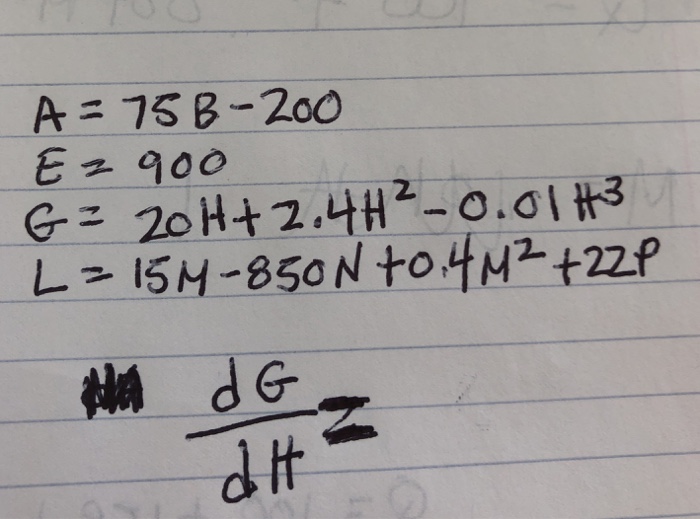 A = 75B - 200
E = 900
G = 20H + 2.4H² - 0.01H³
L = 15M - 850N + 0.4M² + 22P
dG
dH =